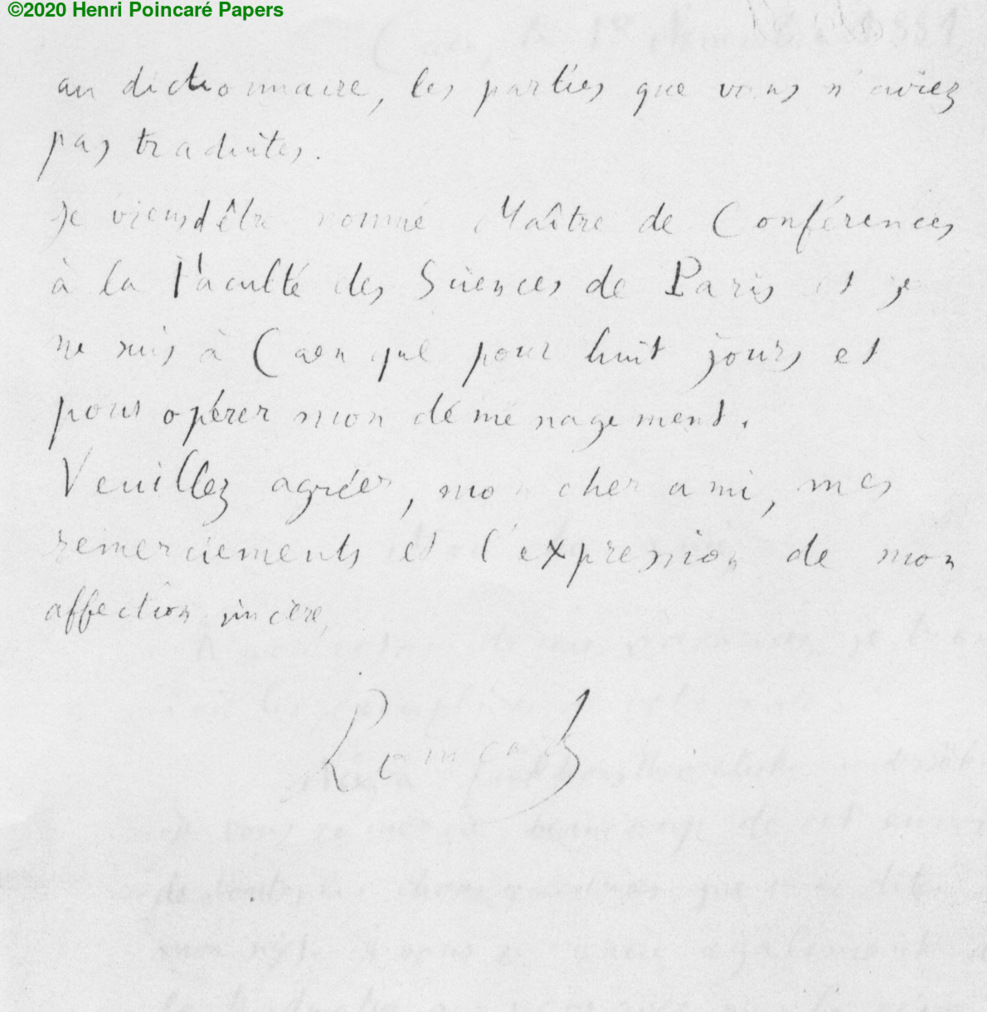 ©2020 Henri Poincaré Papers
au dictionnaire, les parties que vous n'aviez
pas traduites.
Je viens d'être nommé Maître de Conférences
à la Faculté des Sciences de Paris et je
ne suis à Caen que pour huit jours et
pour opérer mon déménagement.
Veuillez agréer, mon cher ami, mes
remerciements et l'expression de mon
affection sincère,
Poincaré